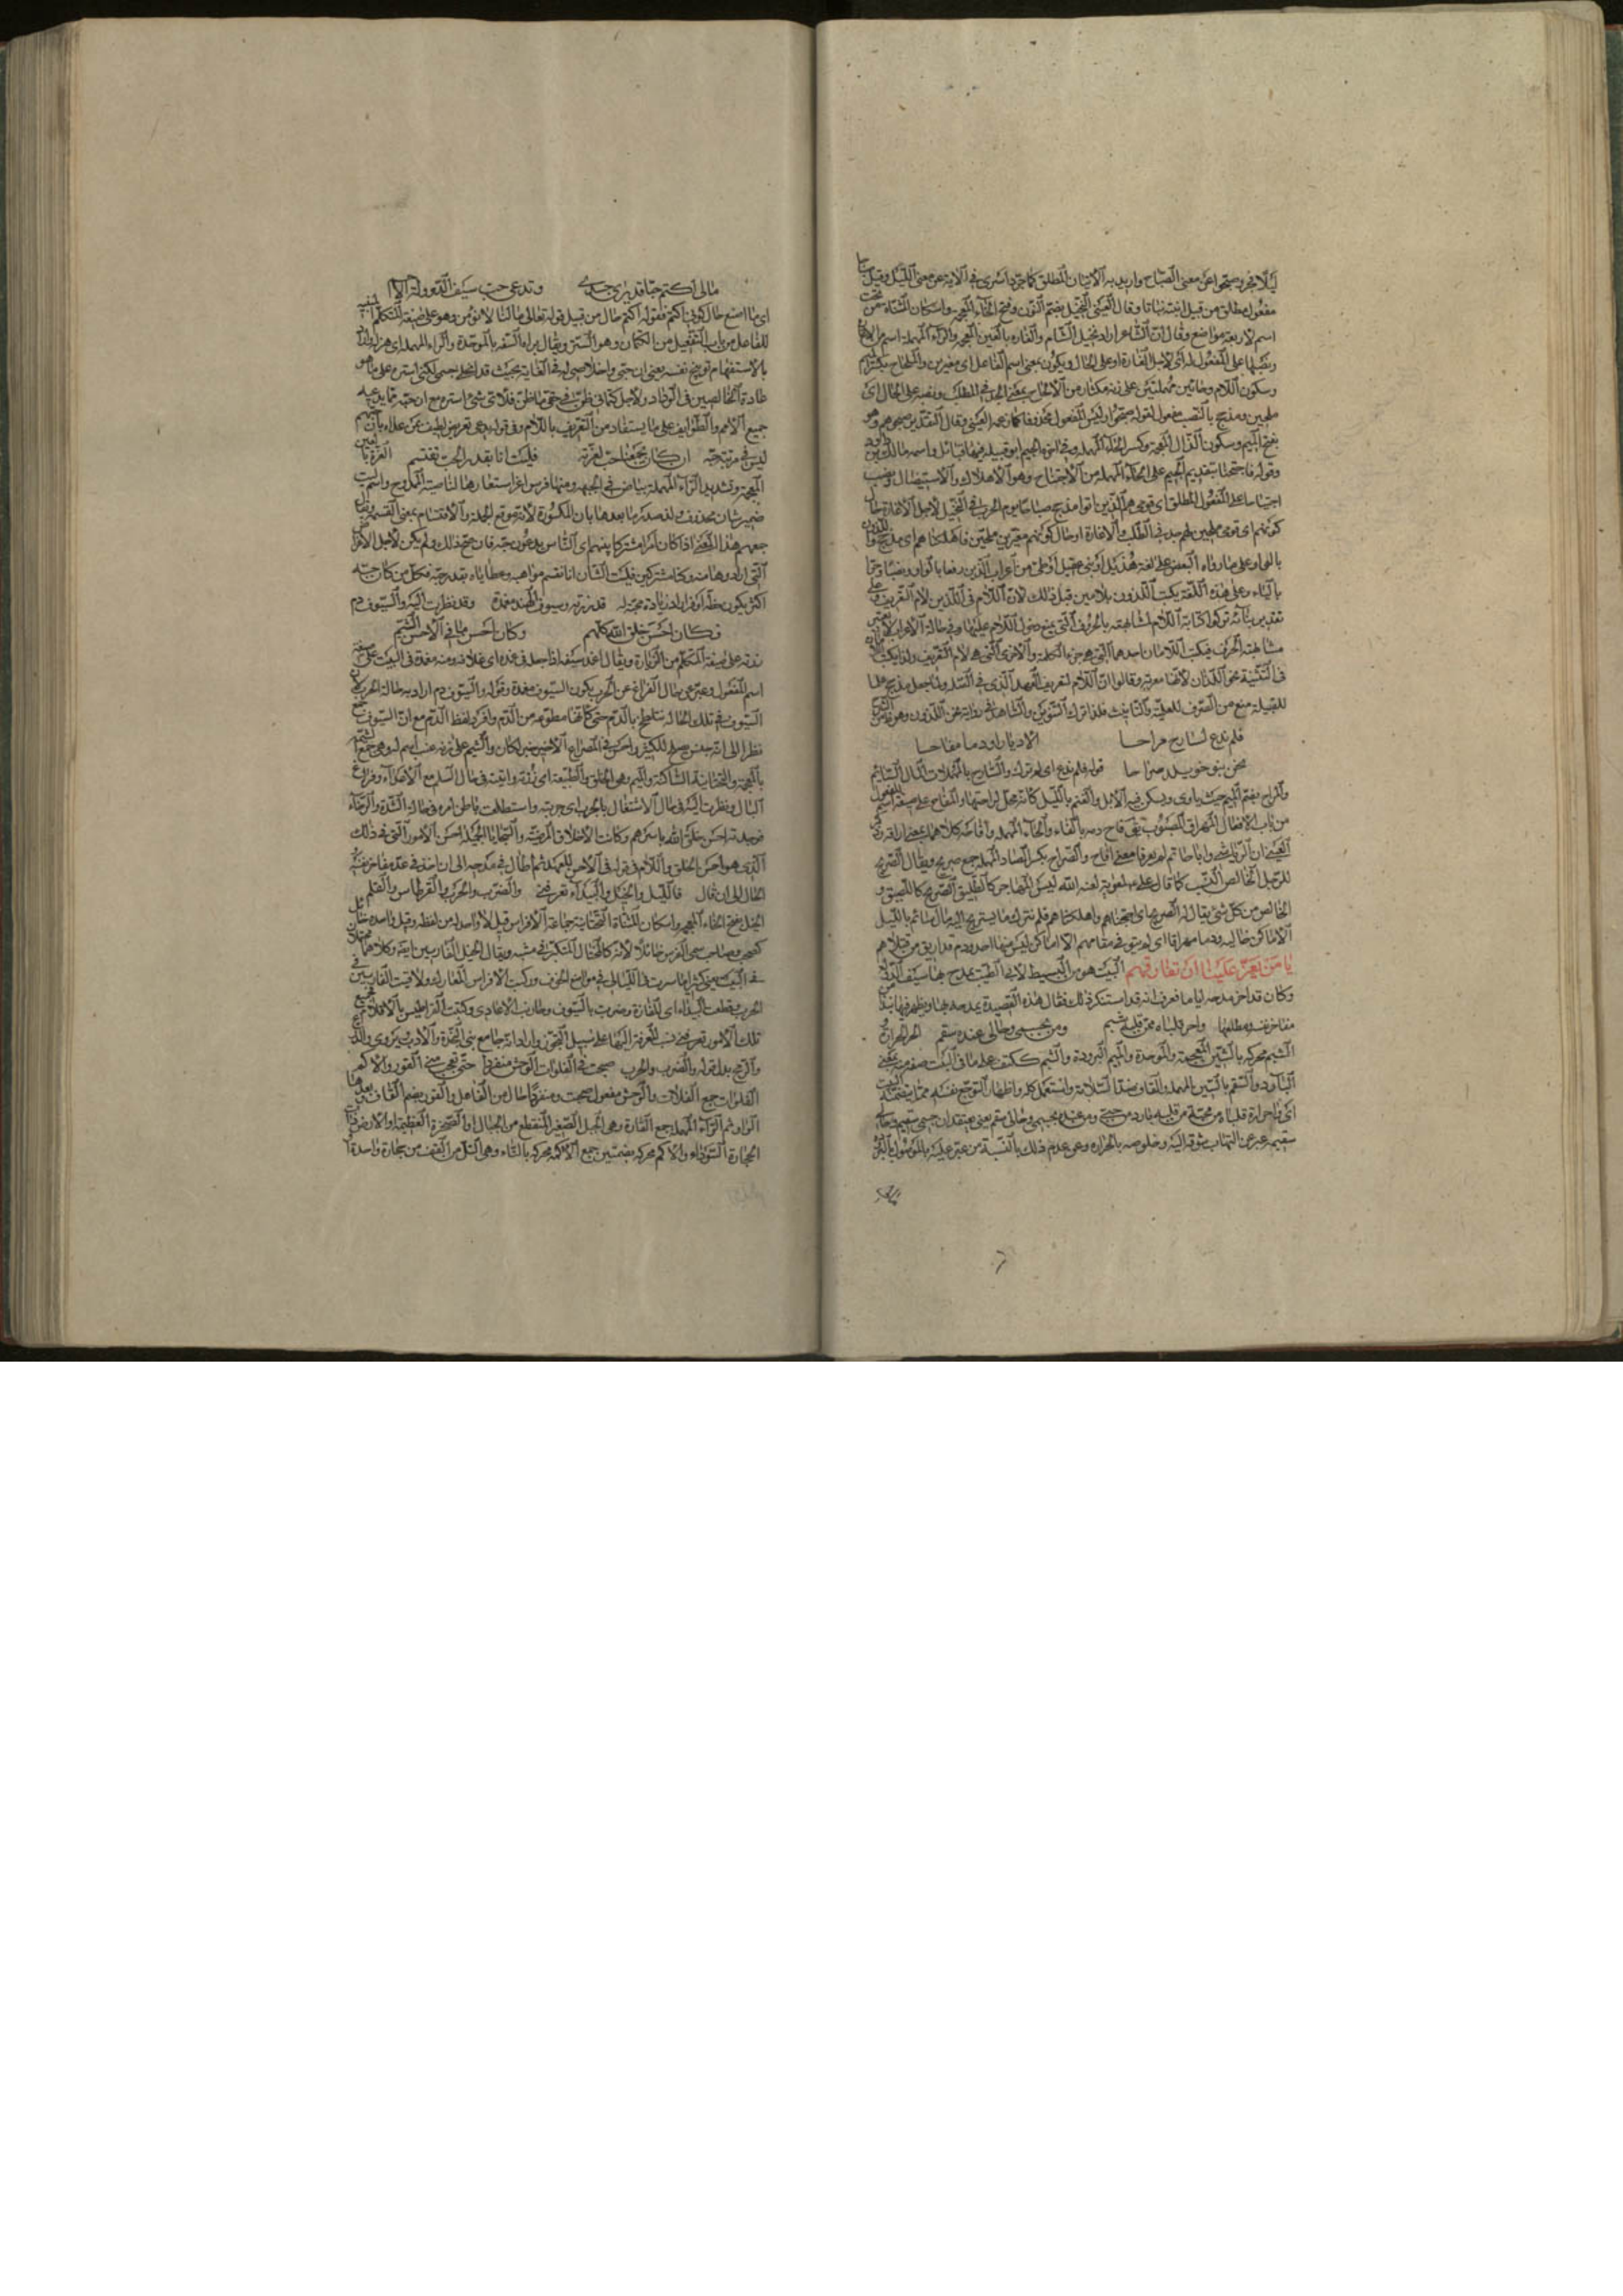 ليلا فجرد صبحوا عن معنى الصباح واريد به الاتيان المطلق كما جرد اسرى في الاية عن معنى الليل وقيل
مفعول مطلق من قبيل انبته نباتا وقال العيني النخيل بضم النون وفتح الخاء المعجمة واسكان المثناة من تحت
اسم لاربعة مواضع وقال ان الشاعر اراد نخيل الشام والغارة بالغين المعجمة والراء المهملة اسم من الاغارة
ونصبها على المفعول له اي لاجل الغارة او على الحال ويكون بمعنى اسم الفاعل اي مغيرين والملحاح بكسر الميم
وسكون اللام وحائين مهملتين على زنة مكثار من الالحاح بمعنى في الطلب ونصبه على الحال اي
ملحين ومذحج بالنصب مفعول لقوله صبحوا وليس المفعول محذوفا كما زعمه العيني وقال التقدير صبحوهم وهو
بفتح الميم وسكون الذال المعجمة وكسر الحاء المهملة وفي اخره الجيم ابو قبيلة فيها قبائل واسمه مالك بن
وقوله فاجتحنا بتقديم الجيم على الحاء المهملة من الاجتياح وهو الاهلاك والاستيصال ونصب
اجتياحا على المفعول المطلق اي قومي هم الذين اتوا مذحج صباحا يوم الحرب في النخيل لاجل الاغارة حال
كونهم اي قومي ملحين لهم في الطلب والاغارة او حال كونهم مغيرين ملحين فاهلكناهم اي مذحج
بالواو على ما رواه البعض على لغة هذيل او بني عقيل او طيئ من اعراب الذين رفعا بالواو ونصبا وجرا
بالياء وعلى هذه اللغة يكتب اللذون بلامين قبل ذلك لان اللام في اللذين لام التعريف وعلى
تقدير بنائه تركوا كتابة اللام لمشابهته بالحروف التي يمنع دخول اللام عليها وفي حالة الاعراب لا
مشابهته الحرف فيكتب اللامان احدهما التي هي جزء الكلمة والاخرى التي هي لام التعريف ولذا يكتب
في التثنية نحو اللذان لانها معربة وقالوا ان اللام لتعريف العهد الذي في ولما جعل مذحج علما
للقبيلة منع من الصرف للعلمية والتانيث فلذا ترك التنوين والشاهد في رواية نحن اللذون وهو
فلم ندع لسارح مراحا الا ديارا ودما مفاحا
نحن بنو خويلد صراحا قوله فلم ندع اي لم نترك والسارح بالمهملات المال السائم
والمراح بضم الميم حيث ياوي ويسكن فيه الابل والغنم بالليل كانه محل لراحتها والمفاح على صيغة اسم المفعول
من باب الافعال المهراق المصبوب يقال فاح دمه بالفاء والحاء المهملة وافاحه كلاهما بمعنى اراقه
العيني ان وابا حاتم لم يعرفا معنى افاح والصراح بكسر الصاد المهملة جمع صريح ويقال الصريح
للرجل الخالص النسب كما قال على لمعوية لعنه الله ليس المهاجر كالطليق ولا الصريح كاللصيق و
الخالص من كل شئ يقال له الصريح اي اجتحناهم واهلكناهم فلم نترك ما يستريح اليه مال سائم بالليل
الاماكن خالية ودما مهراقا اي لم يبق في مقامهم الا اماكن ليس فيها احد ودم قد اريق من قتلاهم
يا من يعز علينا ان نفارقهم البيت هو من البسيط لابي الطيب يمدح بها سيف الدولة
وكان قد اخر مدحه اياما فعرف انه قد استنكر ذلك فقال هذه القصيدة يمدحه بها ويظهر فيها
مفاخر نفسه مطلعها واحر قلباه ممن قلبه شبم ومن بجسمي وحالي عنده سقم الحر الحرارة و
الشبم محركة بالشين المعجمة والموحدة والميم البرودة والشبم ككتف على ما في البيت صفة بمعنى
البارد والسقم بالسين المهملة والقاف ضد السلامة واستعمل كلمة وا لاظهار التوجع بنفسه
اي واحرارة قلباه من محبة من قلبه بارد من حبي ومن عنده بجسمي وحالي سقم يعني يعتقد ان جسمي سقيم وحالي
سقيمة عبر عن التهاب شوقه اليه وخلوصه بالحرارة وعن عدم ذلك بالنسبة من عبر عليه بالموصول بالبرد
مالي اكتم حبا قد برى جسدي وتدعي حب سيف الدولة الامم
اي ما اصنع حال كوني اكتم فقوله اكتم حال من قبيل قوله تعالى ما لنا لا نؤمن وهو على صيغة المتكلم
للفاعل من باب التفعيل من الكتمان وهو الستر ويقال براه السفر بالموحدة والراء المهملة اي هزله واراد
بالاستفهام توبيخ نفسه يعني ان حبي واخلاصي له في الغاية بحيث قد انحل جسمي لكني استره على ما هو
عادة الخالصين في الوداد ولاجل كتماني ظن في حقي ما ظن فلاي شئ استره مع ان حبه مما يدعيه
جميع الامم والطوايف على ما يستفاد من التعريف باللام وفي قوله يدعي تعريض لطيف عن علاه بانهم
ليس في مرتبته ان كان يجمعنا حب لغرته فليت انا بقدر الحب نقتسم الغرة بالغين
المعجمة وتشديد الراء المهملة بياض في الجبهة ومنها فرس اغر استعارها لناصية الممدوح واسم ليت
ضمير شان محذوف ولذا صدر ما بعدها بان المكسورة لانه موقع الجملة والاقتسام بمعنى القسمة
جمعهم هذا المعنى اذا كان امرا مشتركا بينهم اي الناس يدعون حبه فان صح ذلك ولم يكن لاجل الاغراض
التي ارادوها منه وكنا مشتركين فليت الشان انا نقتسم مواهبه وعطاياه بقدر حبه فكل من كان حبه
اكثر يكون حظه اوفر اراد زيادة محبته له قد زرته وسيوف الهند مغمدة وقد نظرت اليه والسيوف دم
فكان احسن خلق الله كلهم وكان احسن ما في الاحسن الشيم
زرته على صيغة المتكلم من الزيارة ويقال اغمد سيفه اذا جعله في غمده اي غلافه ومنه مغمدة في البيت على صيغة
اسم المفعول وعبر عن حال الفراغ عن الحرب بكون السيوف مغمدة وقوله والسيوف دم اراد به حالة الحرب لان
السيوف في تلك الحالة تتلطخ بالدم حتى كانها مطبوعة من الدم وافرد لفظ الدم مع ان السيوف جمع
نظرا الى انه جنس صالح للكثير واحسن في المصراع الاخير خبر لكان والشيم على زنة عنب اسم له وهي جمع الشيمة
بالمعجمة والتحتانية الساكنة والميم وهي الخلق والطبيعة اي زرته ورايته في حال السلم مع الاعداء وفراغ
البال ونظرت اليه في حال الاشتغال بالحرب اي جربته واستطلعت باطن امره في حالة الشدة والرخاء
فوجدته احسن خلق الله باسرهم وكانت الاخلاق المرضية والسجايا الجميلة احسن الامور التي في ذلك
الذي هو احسن الخلق واللام في قوله في الاحسن للعهد ثم اطال في مدحه الى ان اخذ في عد مفاخر نفسه
الحال الى ان قال فالليل والخيل والبيداء تعرفني والضرب والحرب والقرطاس والقلم
الخيل بفتح الخاء المعجمة واسكان المثناة التحتانية جماعة الافراس قيل لا واحد له من لفظه وقيل واحده خائل
كصحب وصاحب سمي الفرس خائلا لانه كالمختال المتكبر في مشيه ويقال الخيل الفارسين ايضا وكلاهما
في البيت يعني كثيرا ما سرت في الليالي في مواضع الخوف وركبت الافراس للمعارك ولاقيت الفارسين في
الحرب وقطعت البيداء اي المفازة وضربت بالسيوف وحاربت الاعادي وكتبت القراطيس بالاقلام فجميع
تلك الامور تعرفني نسب المعرفة اليها على سبيل التجوز وارادانه جامع بين النجدة والادب ويروى
والرمح بدل قوله والضرب والحرب صحبت في الفلوات الوحش منفردا حتى تعجب مني القور والاكم
الفلوات جمع الفلاة والوحش مفعول صحبت ومنفردا حال من الفاعل والقور بضم القاف بعدها
الواو ثم الراء المهملة جمع القارة وهي الجبل الصغير المنقطع من الجبال او الصخرة العظيمة او الارض ذات
الحجارة السوداء والاكم محركة بضمتين جمع الاكمة محركة بالتاء وهي التل من القف من حجارة واحدة